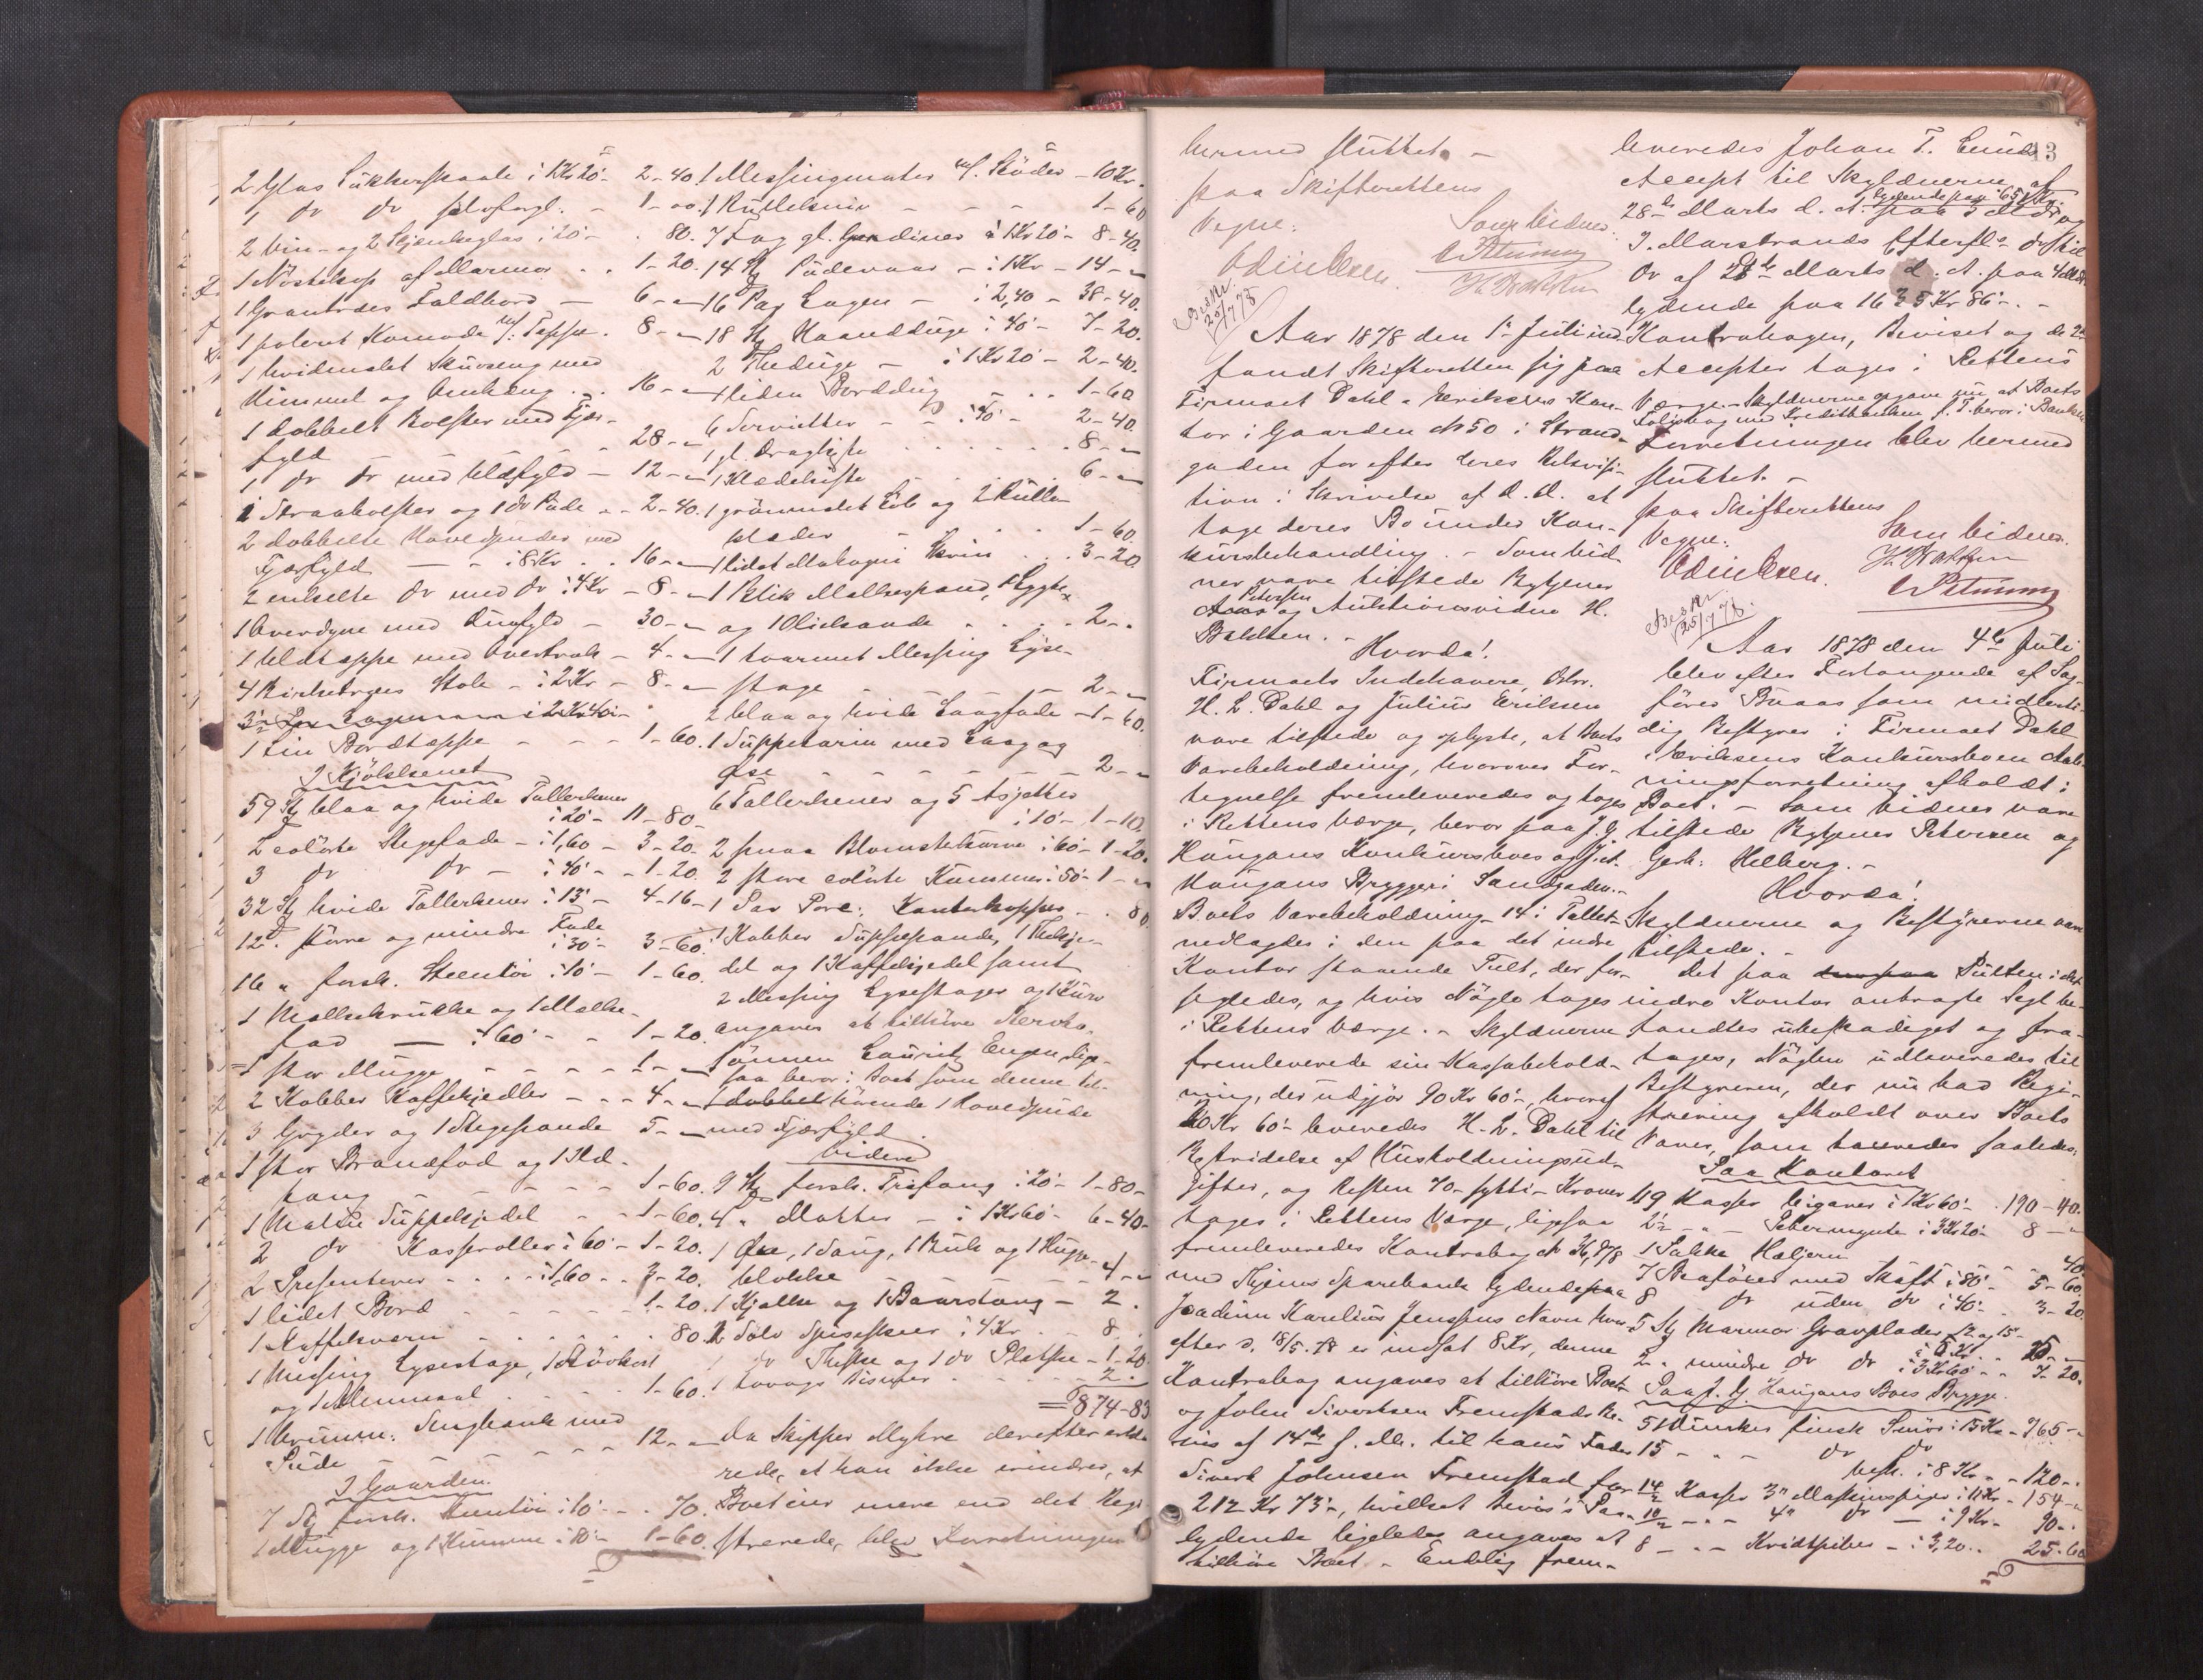 2 Glas Sukkerskaale i 1Kr20 - 2-40.
1 do do forgl. - 1-00.
2 Vin- og 2 Skjænkeglas i 20 - 80.
1 af Marmor . . 1-20.
1 Foldbord - 6-"
1 poleret Komode m/ Teppe . 8-"
1 hvidmalet Skuvseng med
Himmel og Omhæng . . . 16-"
1 dobbelt Bolster med Fjær-
fyld - - - 28-"
1 do do med Uldfyld - 12-"
1 Straabolster og 1 do Pude - 2-40.
2 dobbelte Hovedpuder med
Fjærfyld - - i 8Kr . . 16-"
2 enkelte do med do i 4Kr - 8-"
1 Overdyne med Duufyld - 30-"
1 Uldteppe med Overtræk - 4-"
4 Birketræes Stole - i 2Kr - 8-"
1 Lin Bordteppe - - - 1-60.
I Kjøkkenet
59 St blaa og hvide Tallerkener
i 20 - 11-80-
2 colørte Stegefade - i 1,60 - 3-20.
3 do do - i 40 - - 1-20.
32 St hvide Tallerkener i 13 - 4-16-
12 større og mindre Fade
i 30 - 3-60.
16 " forsk. Steentøi i 10 - 1-60.
1 Melkekrukke og 1 Melke-
fad - i 60 - - 1-20.
1 stor Mugge - - - - 1-"
2 Kobber Kaffekjedler - - - 4-"
3 Gryder og 1 Stegepande 5-"
1 stor Brandfod og 1 Ild-
tang - - - - - 1-60.
1 Suppekjedel - - 1-60.
2 do Kasseroller i 60 - 1-20.
2 Presenterer - - - i 1,60 - - 3-20.
1 lidet Bord - - - - - 1-20.
1 Kaffekværn - - - - - 80.
1 Messing Lysestage, 1
og 1 - - - 1-60.
1 Sengbænk med
Pude - - - - - 12-"
I Gaarden
7 St forsk. Steentøi i 10 - . 70.
1 Mugge og 1 Kumme i 80 - 1-60.
1 Messingmorter m/ Stöder - 10Kr.
1 Rullekniv - - - 1-60
7 Fag gl. Gardiner à 1Kr20 - 8-40.
14 St Pudevaar - i 1Kr - 14-"
16 Par Lagen - i 2,40 - 38-40.
18 St Haandduge i 40 - 7-20.
2 Theduge - i 1Kr20 - 2-40.
1 liden Borddug - . . 1-60
6 Servietter - - i 40 - 2-40.
1 gl. Dragkiste . . . . . . 8-"
1 Klædekiste . . . . 6-"
1 grønmalet og 2 Rulle-
plader - . . . 1-60.
1 lidet Mahogni Skrin . . . 3-20.
1 Blik Melkespand, 1 Bygge
og 1 . . . . 2-"
1 Messing Lyse-
stage - - - - 2-"
2 blaa og hvide Laagfade - 1-60.
1 Suppeterin med Laag og
Øse - - - - - 2-"
6 Tallerkener og 5 Asjetter
i 10 - 1-10.
2 smaa Blomsterkurve i 60 - 1-20.
2 store colørte Kummer i 50 - 1-"
1 Par Porc: - . 80
1 Kobber Suppepande, 1 Thekje-
del og 1 Kaffekjedel samt
2 Messing Lysestager og 1 Kurv
angaves at tilhøre Skerera-
sønnen Lauritz Engen, lige-
saa beror i Boet som denne til-
hørende 1 Hovedpude
med Fjærfyld.
Videre
9 St forsk. Træfang i 20 - 1-80-
4 " Matter - i 1Kr60 - 6-40-
1 Øxe, 1 Saug, 1 Buk og 1 Hugge-
blokke - - - - 4-"
1 Kjælke og 1 Baarstang - 2.
2 Sølv Spiseskeer i 4Kr - - 8 .
1 do Theske og 1 do - 1-20.
1 Bismer - - - - 2.
= 874-83
Da Skipper Myhre derefter erklæ-
rede, at han ikke erindrer, at
Boet eier mere end det Regi-
strerede, blev Forretningen
hermed sluttet. -
paa Skifterettens
Vegne:
Som Vidner.
Odin Olsen.
C Petersen
H. Bakken
Beskr
25/7 78
Aar 1878 den 1ste Juli ind-
fandt Skifteretten sig paa
Firmaet Dahl & Eriksens Kon-
tor i Gaarden No 50 i Strand-
gaden for efter deres Rekvisi-
tion i Skrivelse af D. D. at
tage deres Bo under Kon-
kursbehandling. - Som Vid-
ner vare tilstede Bytjener
Petersen og Auktionsvidne H.
Bakken. -
Hvorda!
Firmaets Indehavere, DHr.
H. L. Dahl og Julius Eriksen
vare tilstede og oplyste, at Boets
Varebeholdning, hvorover For-
tegnelse fremleveredes og toges
i Rettens Værge, beror paa J. G.
Haugans Konkursboes og J. A.
Haugans Brygger i Sandgaden. -
Boets Varebeholdning - 14 i Tallet -
nedlagdes i den paa det indre
Kontor staaende Pult, der for-
segledes, og hvis Nøgle toges
i Rettens Værge. - Skyldnerne
fremleverede sin Kassabehold-
ning, der udgjør 90Kr 60, hvoraf
20Kr 60 leveredes H. L. Dahl til
Bestridelse af Husholdningsud-
gifter, og Resten 70 - sytti - Kroner
toges i Rettens Værge, ligesaa
fremleveredes Kontrabog No 36,978
med Thjems Sparebank lydende paa
Joachim Karelius Jenssens Navn hvor-
efter d. 18/5.78 er indsat 8Kr, denne
Kontrabog angaves at tilhøre Boet
og Johan Sivertsen Fremstads Be-
vis af 14de f. M. til hans Fader
Sivert Johnsen Fremstad for
212 Kr 73, hvilket Bevis's Paa-
lydende ligeledes angaves at
tilhøre Boet. - Endelig frem-
leveredes Johan T. Lunds
13
Accept til Skyldnerne af
28de Marts d. A. lydende paa 651Kr. og
J. Marstrands Efterfl. do til
do af 28de Marts d. A. paa 4 Mdr.
lydende paa 1635Kr 86. -
Kontrabogen, Beviset og de 2de
Accepter toges i Rettens
Værge. - Skyldnerne opgave nu at Boets
Folio bog med Kreditbanken f. T. beror i Banken
Forretningen blev hermed
sluttet. -
paa Skifterettens
Vegne:
Som Vidner.
H. Bakken
Odin Olsen.
C Petersen
Beskr
25/7 78.
Aar 1878 den 4de Juli
blev efter Forlangende af Sag-
fører Buaas som midlerti-
dig Bestyrer i Firmaet Dahl
& Eriksens Konkursboen Aab-
ningsforretning afholdt i
Boet. - Som Vidner vare
tilstede Bytjener Petersen og
Gerh: Helberg. -
Hvorda!
Skyldnerne og Bestyreren vare
tilstede. -
Det paa Pulten i det
indre Kontor anbragte Segl be-
fandtes ubeskadiget og fra-
toges, Nøglen udleveredes til
Bestyreren, der nu bad Regi-
strering afholdt over Boets
Varer, som taxeredes saaledes:
Paa Kontoret
119 Kasser Cigarer i 1Kr60 . 190-40.
2½ - " - Pebermynte i 3Kr20 - 8-"
1 Pakke - - - 40
7 med Skaft i 80 - 5-60.
8 - do uden do i 40 . 3-20
5 St Marmor Gravplader 12 og 15"
i 5Kr . . 25-"
2 " mindre do do i 3Kr60 - . 7-20.
Paa J. G. Haugans Boes Brygge.
51 Dunker finsk Smør i 15Kr - 765-"
15 - " - do do
besk. i 8Kr - - 120-.
14/2 Kasser 3" Maskinspiger i 11Kr - 154-"
10/2 - " - 4" do - i 9Kr - 90-.
8 - " - Kridtpiber - i 3,20 . . 25-60